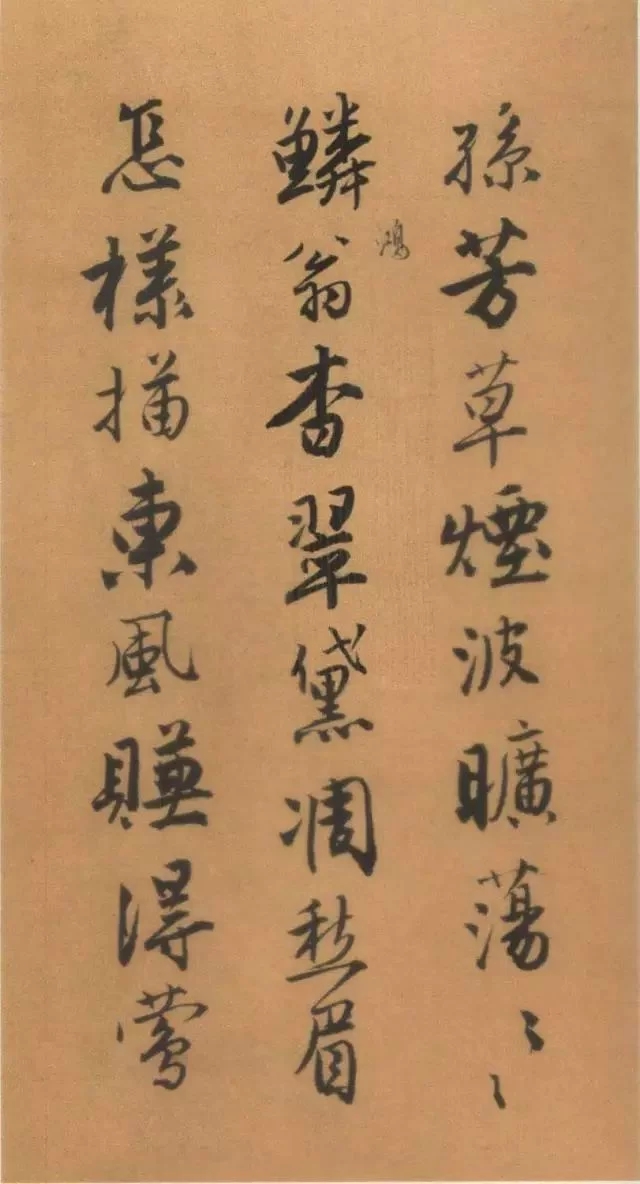 孫芳草煙波曠蕩〻〻
鴻
鱗翁杳翠黛凋愁眉
怎樣描東風賺得鶯